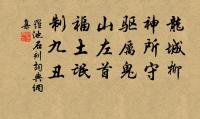 龍城柳
神所守
驅厲鬼
山左首
福土氓
制九丑
羅池石刻詞典網
集